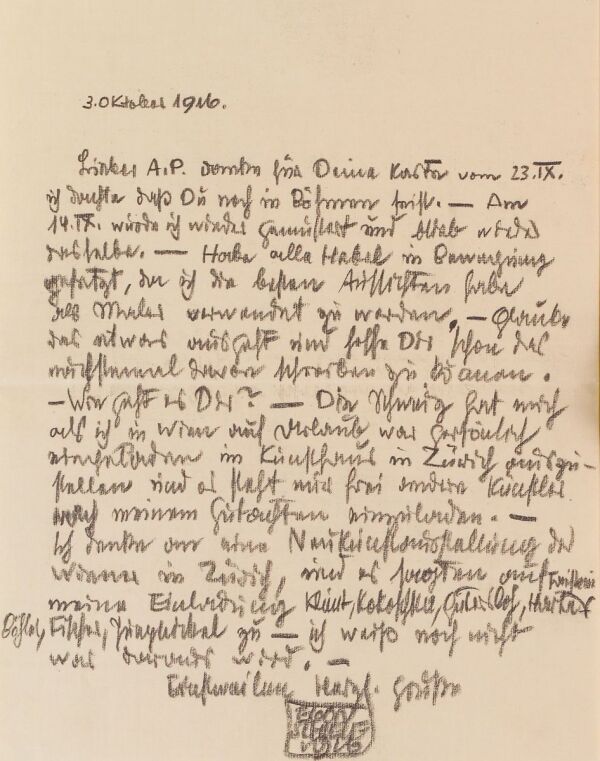 3. Oktober 1916.
Lieber A.P. danke für Deine Karte vom 23.IX.
ich dachte daß Du noch in Böhmen seist. — Am
14.IX. wurde ich wieder gemustert und blieb wieder
derselbe. — Habe alle Hebel in Bewegung
gesetzt, da ich die besten Aussichten habe
als Maler verwendet zu werden. — Glaube
das etwas ausgeht und hoffe Dir schon das
nächstemal davon schreiben zu können.
— Wie geht es Dir? — Die Schweiz hat mich
als ich in Wien auf Urlaub war persönlich
eingeladen im Kunsthaus in Zürich auszu-
stellen und es steht mir frei andere Künstler
nach meinem Gutachten einzuladen. —
Ich denke an eine Neukunstausstellung der
Wiener in Zürich, und es sagten auf
meine Einladung Klimt, Kokoschka, Gütersloh, Harta
Fischer, zu — ich weiß noch nicht
was daraus wird. —
Einstweilen herzl. Grüße
EGON
SCHIELE
1916